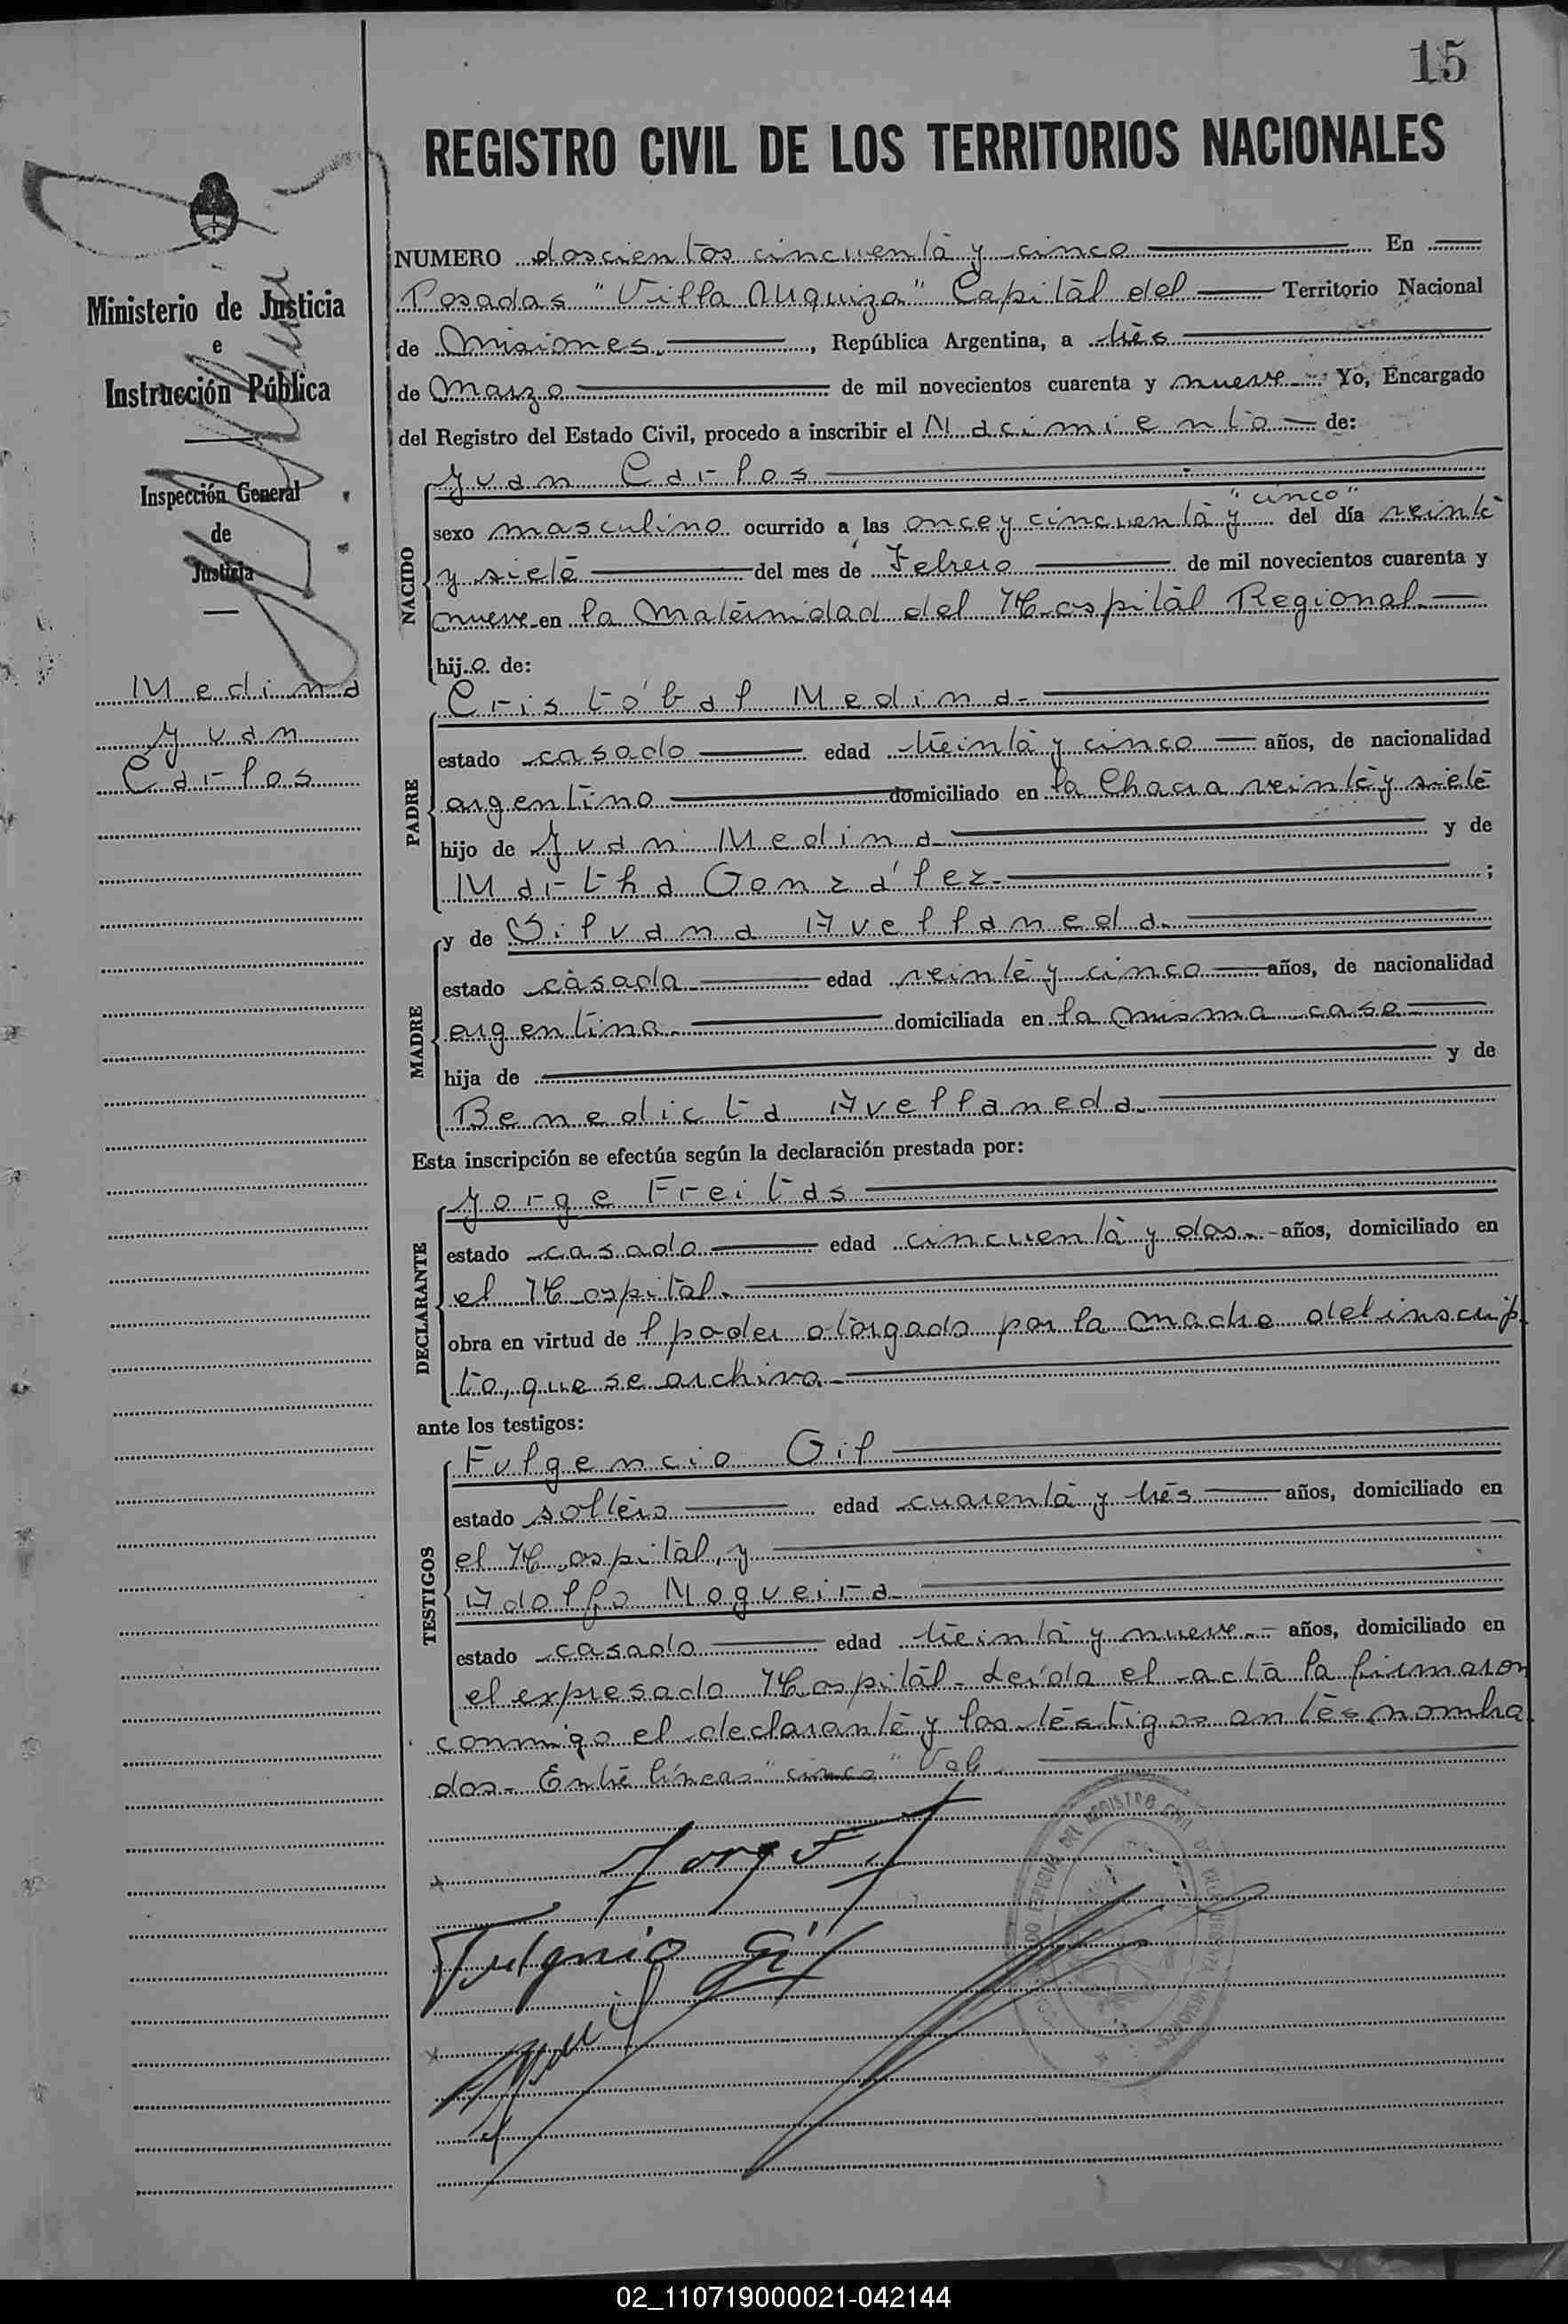 15
REGISTRO CIVIL DE LOS TERRITORIOS NACIONALES
Ministerio de Justicia
e
Instrucción Pública
Inspección General
de
Justicia
Medina
Juan
Carlos
NUMERO doscientos cincuenta y cinco En
Posadas "Villa Urquiza" Capital del Territorio Nacional
de Misiones, República Argentina, a tres
de Marzo de mil novecientos cuarenta y nueve Yo, Encargado
del Registro del Estado Civil, procedo a inscribir el Nacimiento de:
NACIDO
Juan Carlos
"cinco"
sexo masculino ocurrido a las once y cincuenta y del día veinte
y siete del mes de Febrero de mil novecientos cuarenta y
nueve en la Maternidad del Hospital Regional.
hijo de:
PADRE
Cristóbal Medina.
estado casado edad treinta y cinco años, de nacionalidad
argentino domiciliado en la Chacra veinte y siete
hijo de Juan Medina y de
Martha González. ;
MADRE
y de Silvana Avellaneda.
estado casada edad veinte y cinco años, de nacionalidad
argentina domiciliada en la misma casa
hija de y de
Benedicta Avellaneda.
Esta inscripción se efectúa según la declaración prestada por:
DECLARANTE
Jorge Freitas
estado casado edad cincuenta y dos. años, domiciliado en
el Hospital.
obra en virtud de l poder otorgado por la madre del inscrip
to, que se archiva.
ante los testigos:
TESTIGOS
Fulgencio Gil
estado soltero edad cuarenta y tres años, domiciliado en
el Hospital, y
Adolfo Nogueira
estado casado edad treinta y nueve. años, domiciliado en
el expresado Hospital. Leída el acta la firmaron
conmigo el declarante y los testigos antes nombra
dos. Entre líneas "cinco" Vale
Jorg F
Fulgnio Gil
DEL REGISTRO CIVIL DE
02_110719000021-042144